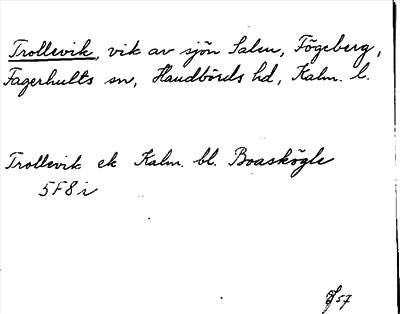 Trollevik, vik av sjön Salen, Fögeberg,
Fagerhults sn, Handbörds hd, Kalm. l.
Trollevik ek Kalm. bl. Boaskögle
5F8i
57